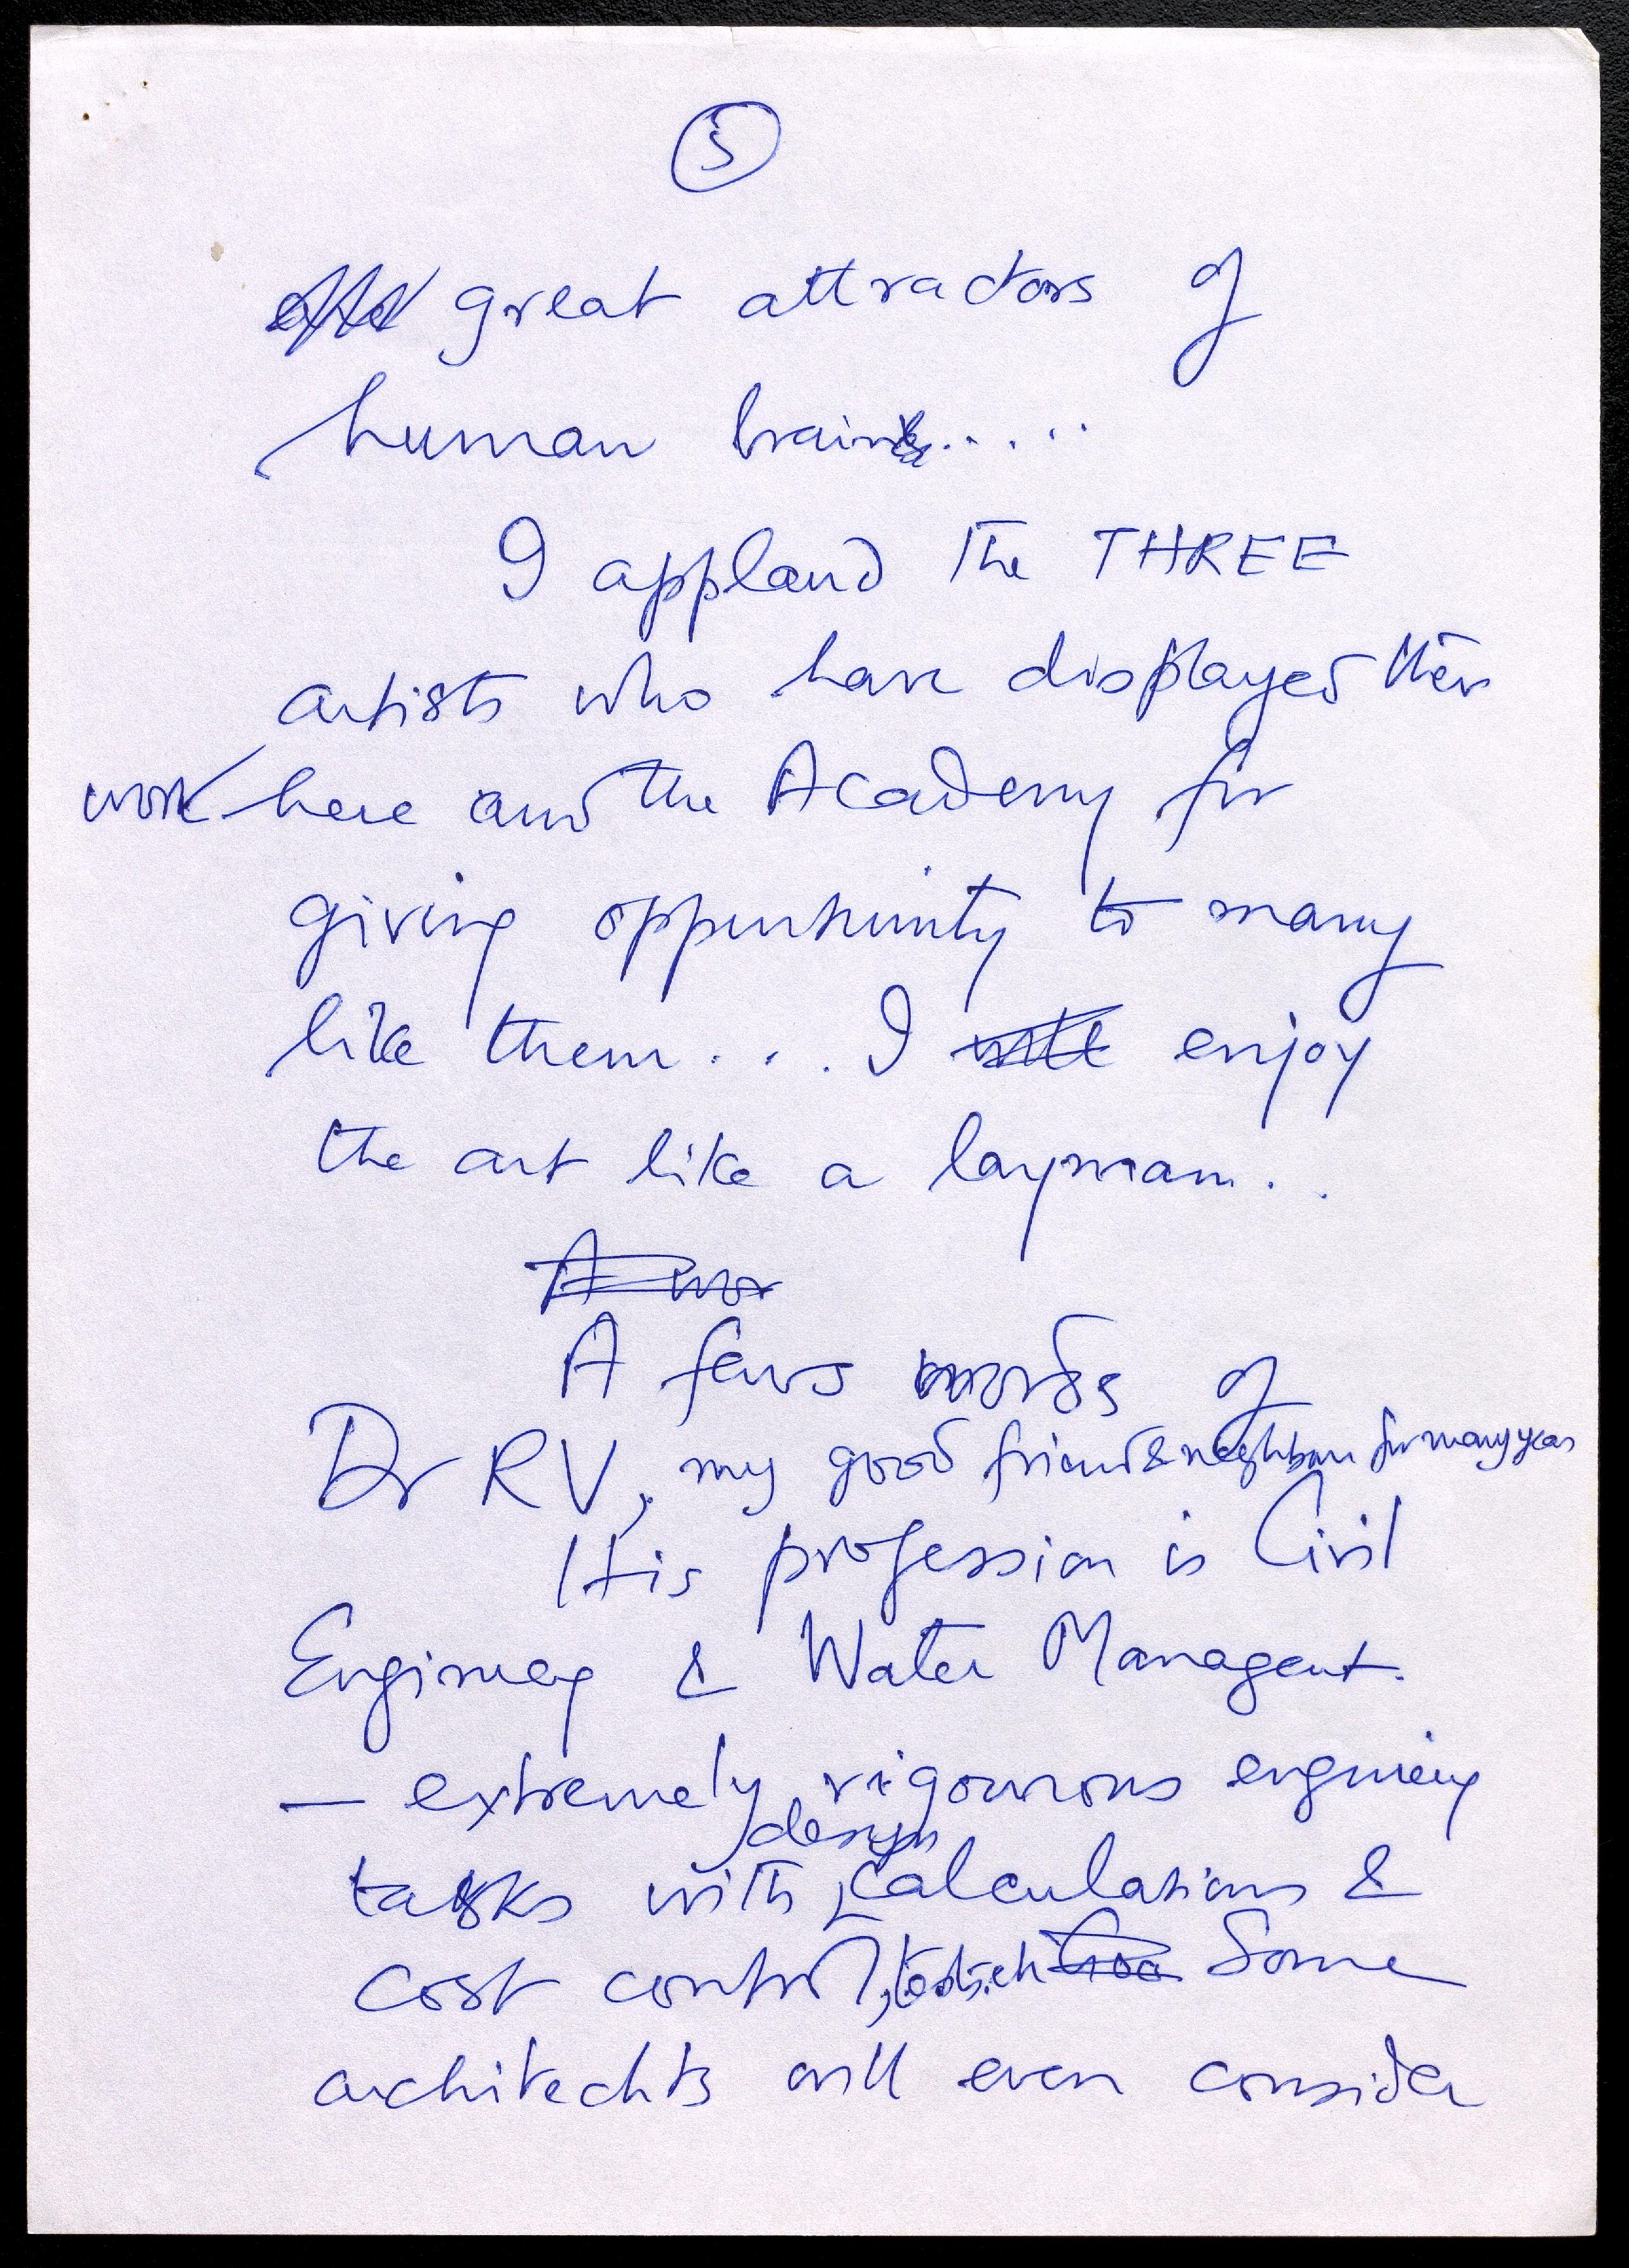 5
great attractors of
human brain.....
I applaud the THREE
artists who have displayed their
work here and the Academy for
giving oppurtunity to many
like them... I enjoy
the art like a layman..
A few words of
Dr RV, my good friend & neighbour for many years
His profession is Civil
Engineeg & Water Managent.
— extremely rigourous engineeg
design
tasks with calculations &
cost control, Some
architechts will even consider